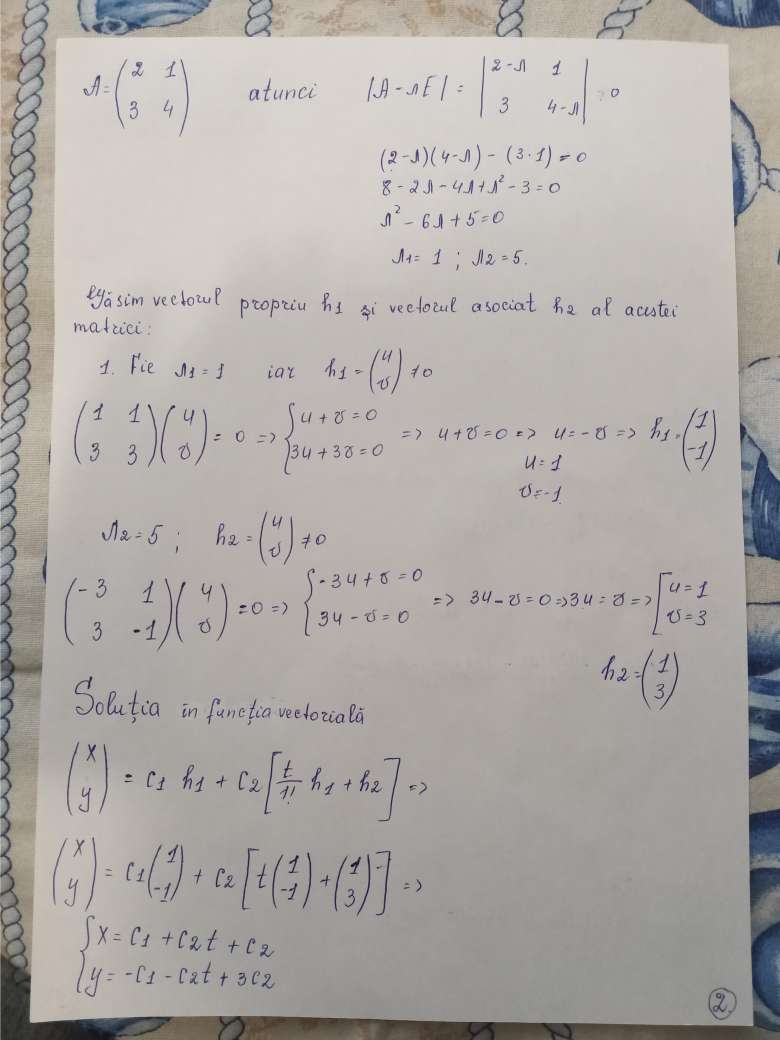 A = (2 1 / 3 4) atunci |A - λE| = |2-λ 1 / 3 4-λ| = 0
(2-λ)(4-λ) - (3·1) = 0
8 - 2λ - 4λ + λ² - 3 = 0
λ² - 6λ + 5 = 0
λ1 = 1 ; λ2 = 5.
Găsim vectorul propriu h1 și vectorul asociat h2 al acestei
matrici:
1. Fie λ1 = 1 iar h1 = (u / v) ≠ 0
(1 1 / 3 3)(u / v) = 0 => {u + v = 0 / 3u + 3v = 0 => u + v = 0 => u = -v => h1 = (1 / -1)
u = 1
v = -1
λ2 = 5 ; h2 = (u / v) ≠ 0
(-3 1 / 3 -1)(u / v) = 0 => {-3u + v = 0 / 3u - v = 0 => 3u - v = 0 => 3u = v => [u = 1 / v = 3
h2 = (1 / 3)
Soluția în funcția vectorială
(x / y) = C1 h1 + C2 [t/1! h1 + h2] =>
(x / y) = C1 (1 / -1) + C2 [t (1 / -1) + (1 / 3)] =>
{x = C1 + C2t + C2
y = -C1 - C2t + 3C2
2